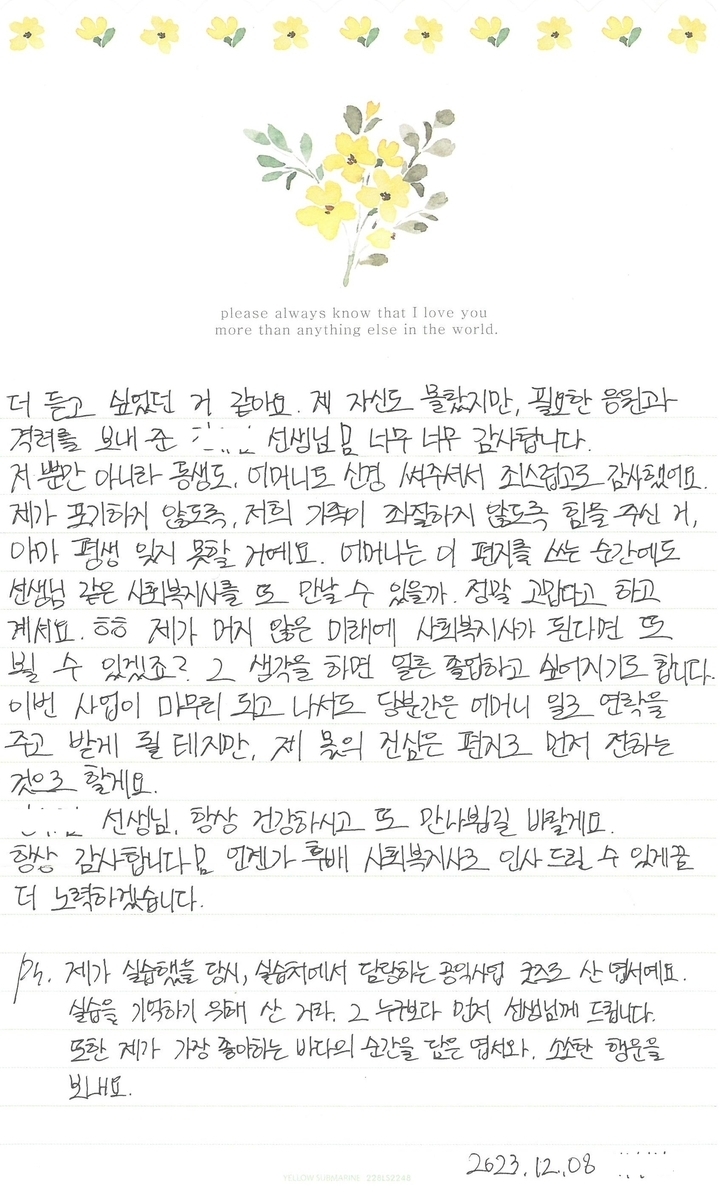 please always know that I love you
more than anything else in the world.
더 듣고 싶었던 거 같아요. 제 자신도 몰랐지만, 필요한 응원과
격려를 보내 준 선생님 너무 너무 감사합니다.
저 뿐간 아니라 동생도, 어머니도 신경 써주셔서 죄스럽고도 감사했어요.
제가 포기하지 않도록, 저희 가족이 좌절하지 않도록 힘을 주신 거,
아마 평생 잊지 못할 거예요. 어머니는 이 편지를 쓰는 순간에도
선생님 같은 사회복지사를 또 만날 수 있을까. 정말 고맙다고 하고
계세요. ㅎㅎ 제가 머지 않은 미래에 사회복지사가 된다면 또
뵐 수 있겠죠? 그 생각을 하면 얼른 졸업하고 싶어지기도 합니다.
이번 사업이 마무리 되고 나서도 당분간은 어머니 일로 연락을
주고 받게 될 테지만, 제 몫의 진심은 편지로 먼저 전하는
것으로 할게요.
선생님, 항상 건강하시고 또 만나뵙길 바랄게요.
항상 감사합니다 언젠가 후배 사회복지사로 인사 드릴 수 있게끔
더 노력하겠습니다.
Ps. 제가 실습했을 당시, 실습처에서 담당하는 공익사업 굿즈로 산 엽서예요.
실습을 기억하기 위해 산 거라, 그 누구보다 먼저 선생님께 드립니다.
또한 제가 가장 좋아하는 바다의 순간을 담은 엽서와, 소소한 행운을
보내요.
2023.12.08
YELLOW SUBMARINE 22SLS2248